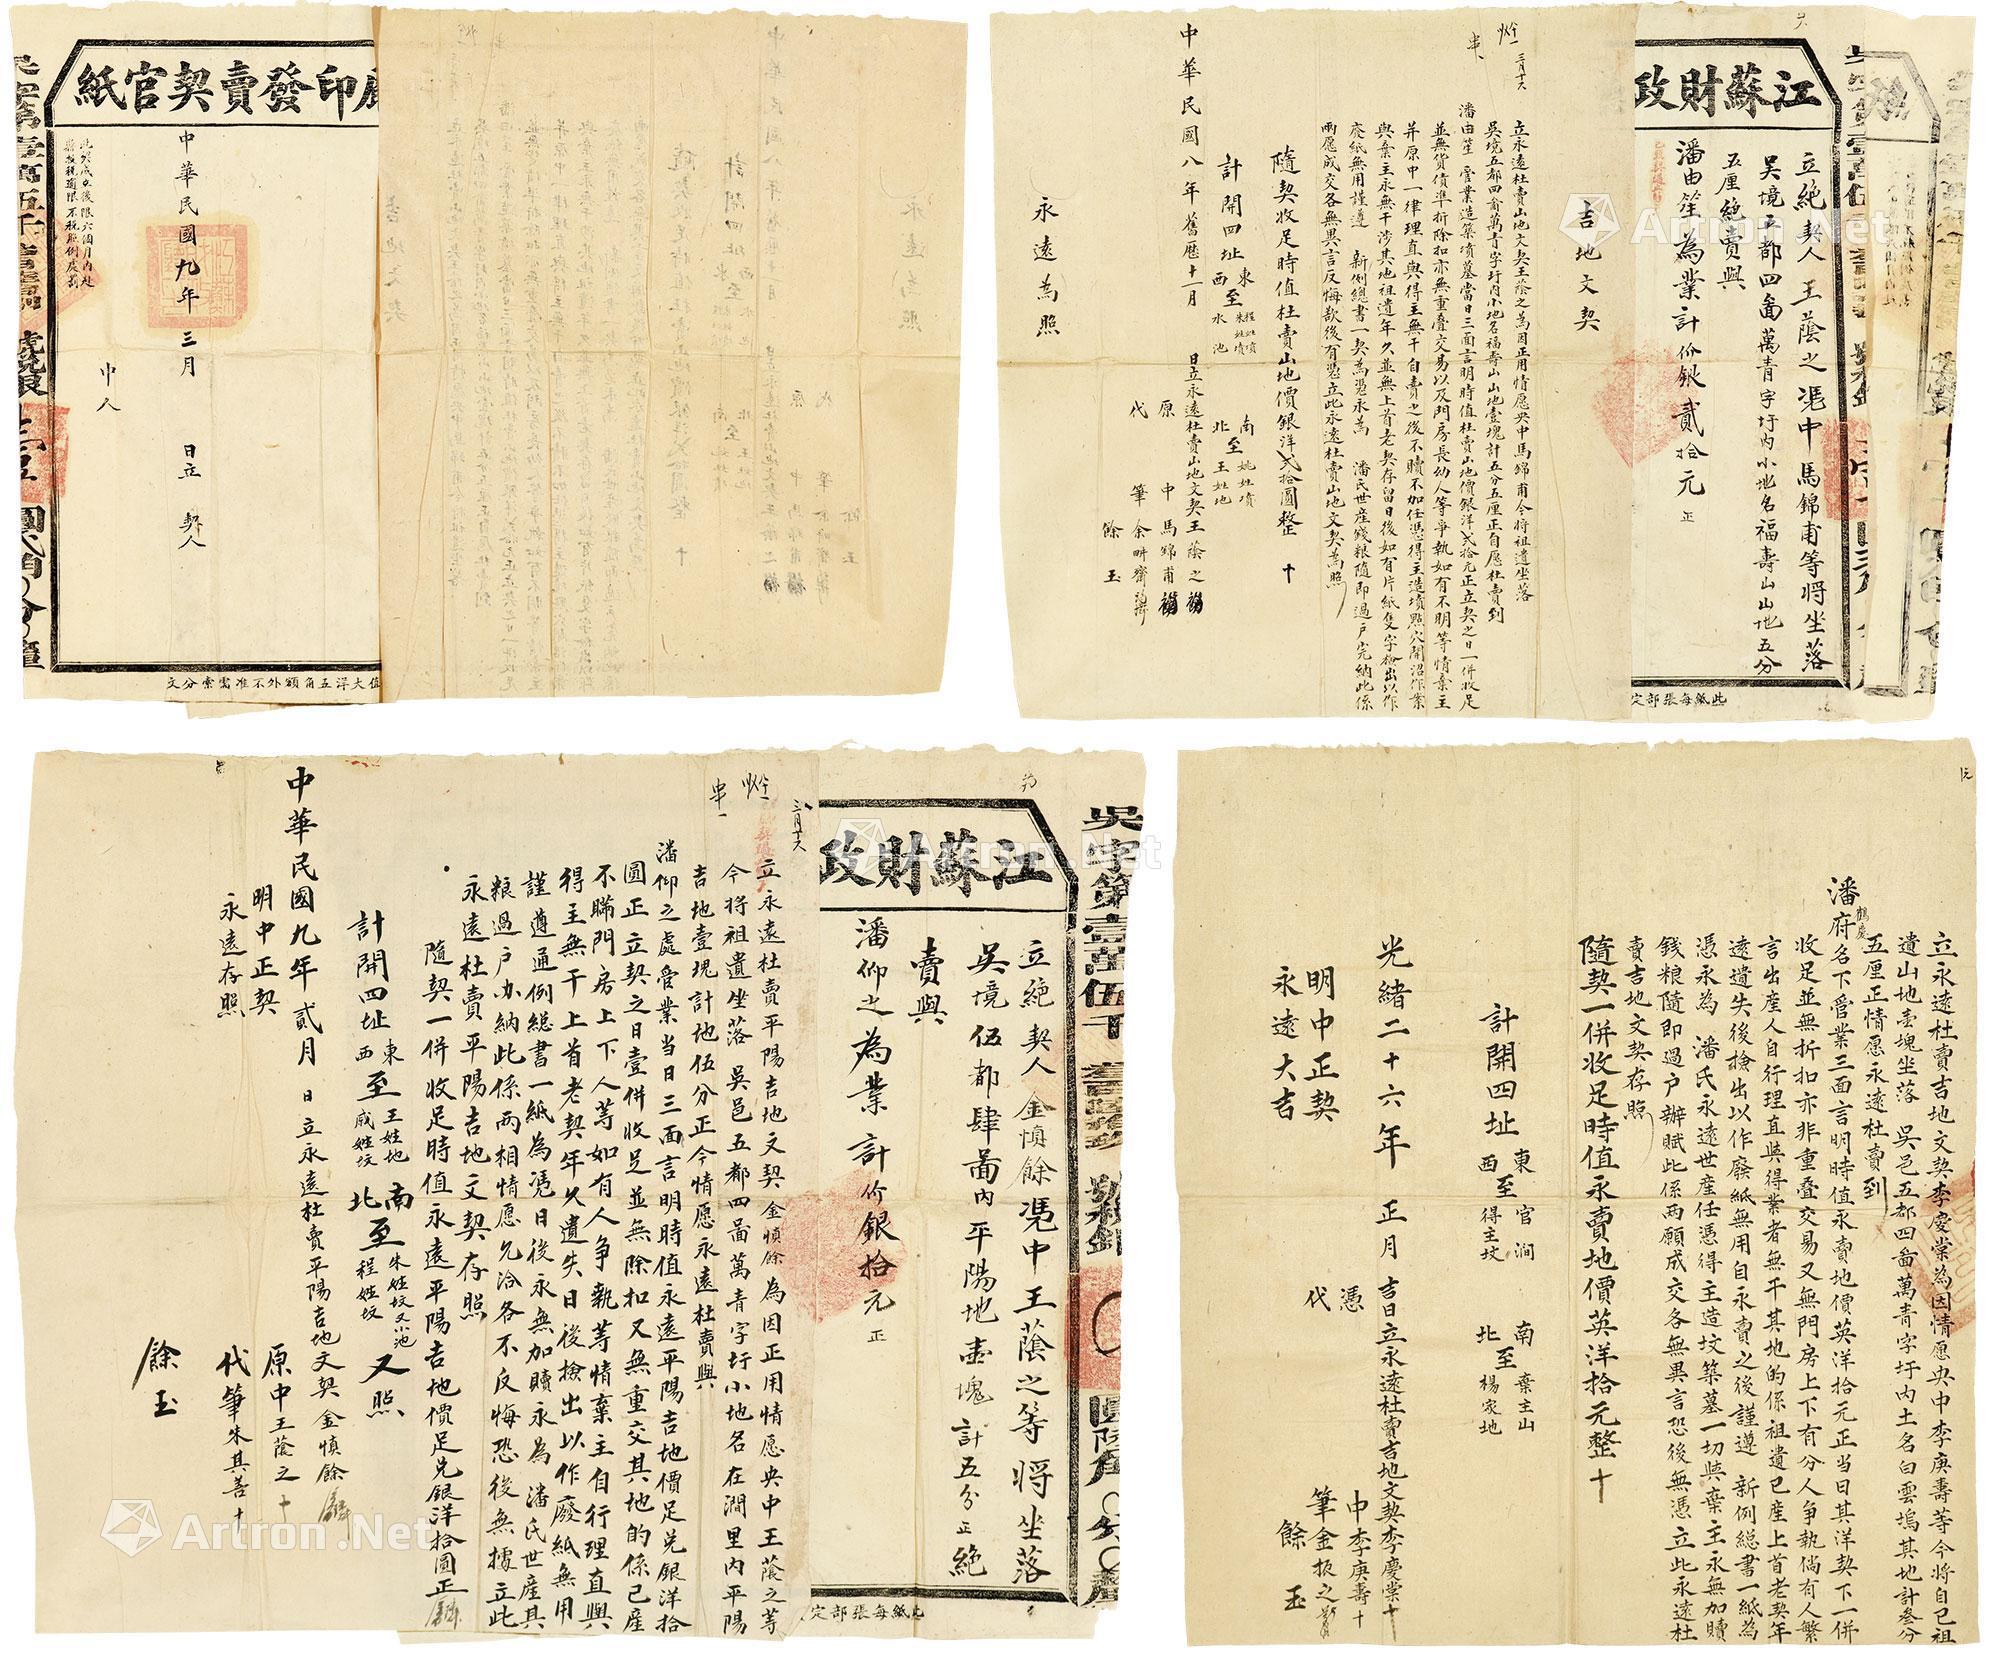 廳印發賣契官紙
中華民國九年三月 日立 契人
中人
此契成立後限六個月內赴
縣投稅逾限不稅照例處罰
江蘇財政
立絕契人王蔭之憑中馬錦甫等將坐落
吳境五都四啚萬青字圩內小地名福壽山山地五分
五厘絕賣與
潘由笙為業計价銀貳拾元 正
此紙每張部定
吉地文契
三月十六
立永遠杜賣山地文契王蔭之為因正用情愿央中馬錦甫今將祖遺坐落
吳境五都四啚萬青字圩內小地名福壽山山地壹塊計五分五厘正自愿杜賣到
潘由笙 管業造築墳墓當日三面言明時值杜賣山地價銀洋弍拾元正立契之日一併收足
並無貨債準折除扣亦無重疊交易以及門房長幼人等爭執如有不明等情棄主
并原中一律理直與得主無干自賣之後不贖不加任憑得主造墳照穴開沼作業
與棄主永無干涉其地祖遺年久並無上首老契存留日後如有片紙隻字檢出以作
廢紙無用謹遵 新例總書一契為憑永為 潘氏世產錢粮隨即過戶完納此係
兩愿成交各無異言反悔欲後有憑立此永遠杜賣山地文契為照
隨契收足時值杜賣山地價銀洋弍拾圓整 十
計開四址 東至 程姓墳 朱姓墳 西至 水池 南至 姚姓墳 北至 王姓地
中華民國八年舊歷十一月 日立永遠杜賣山地文契王蔭之
原中馬錦甫
代筆余畊齋
餘玉
永遠為照
吳字第壹萬伍千
江蘇財政
立絕契人金慎餘憑中王蔭之等將坐落
吳境伍都肆啚內平陽地壹塊計五分正絕
賣與
潘仰之為業計价銀拾元 正
此紙每張部定
三月十六
立永遠杜賣平陽吉地文契金慎餘為因正用情愿央中王蔭之等
今將祖遺坐落 吳邑五都四啚萬青字圩小地名在澗里內平陽
吉地壹塊計地伍分正今情愿永遠杜賣與
潘仰之處管業當日三面言明時值永遠平陽吉地價足兑銀洋拾
圓正立契之日壹併收足並無除扣又無重交其地的係已產
不瞞門房上下人等如有人爭執等情棄主自行理直與
得主無干上首老契年久遺失日後檢出以作廢紙無用
謹遵通例總書一紙為憑日後永無加贖永為 潘氏世產其
粮過戶办納此係两相情愿允洽各不反悔恐後無據立此
永遠杜賣平陽吉地文契存照
隨契一併收足時值永遠平陽吉地價足兑銀洋拾圓正
計開四址 東至 王姓地 西至 戚姓坟 南至 朱姓坟又小池 北至 程姓坟 又照
中華民國九年貳月 日立永遠杜賣平陽吉地文契金慎餘
明中正契
原中王蔭之十
永遠存照
代筆朱其善十
餘玉
立永遠杜賣吉地文契李慶棠為因情愿央中李庚壽等今將自己祖
遺山地壹塊坐落 吳邑五都四啚萬青字圩內土名白雲塢其地計叁分
五厘正情愿永遠杜賣到
潘府鶴慶名下管業三面言明時值永賣地價英洋拾元正當日其洋契下一併
收足並無折扣亦非重疊交易又無門房上下有分人爭執倘有人繁
言出產人自行理直與得業者無干其地的係祖遺已產上首老契年
遠遺失後檢出以作廢紙無用自永賣之後謹遵 新例總書一紙為
憑永為 潘氏永遠世產任憑得主造坟築墓一切與棄主永無加贖
錢粮隨即過戶辦賦此係两願成交各無異言恐後無憑立此永遠杜
賣吉地文契存照
隨契一併收足時值永賣地價英洋拾元整十
計開四址 東至 官澗 西至 得主坟 南至 棄主山 北至 楊家地
光緒二十六年 正月 吉日立永遠杜賣吉地文契李慶棠十
明中正契
憑中李庚壽十
永遠大吉
代筆金振之
餘玉
Artron.Net
Artron.Net
Artron.Net
Artron.Net